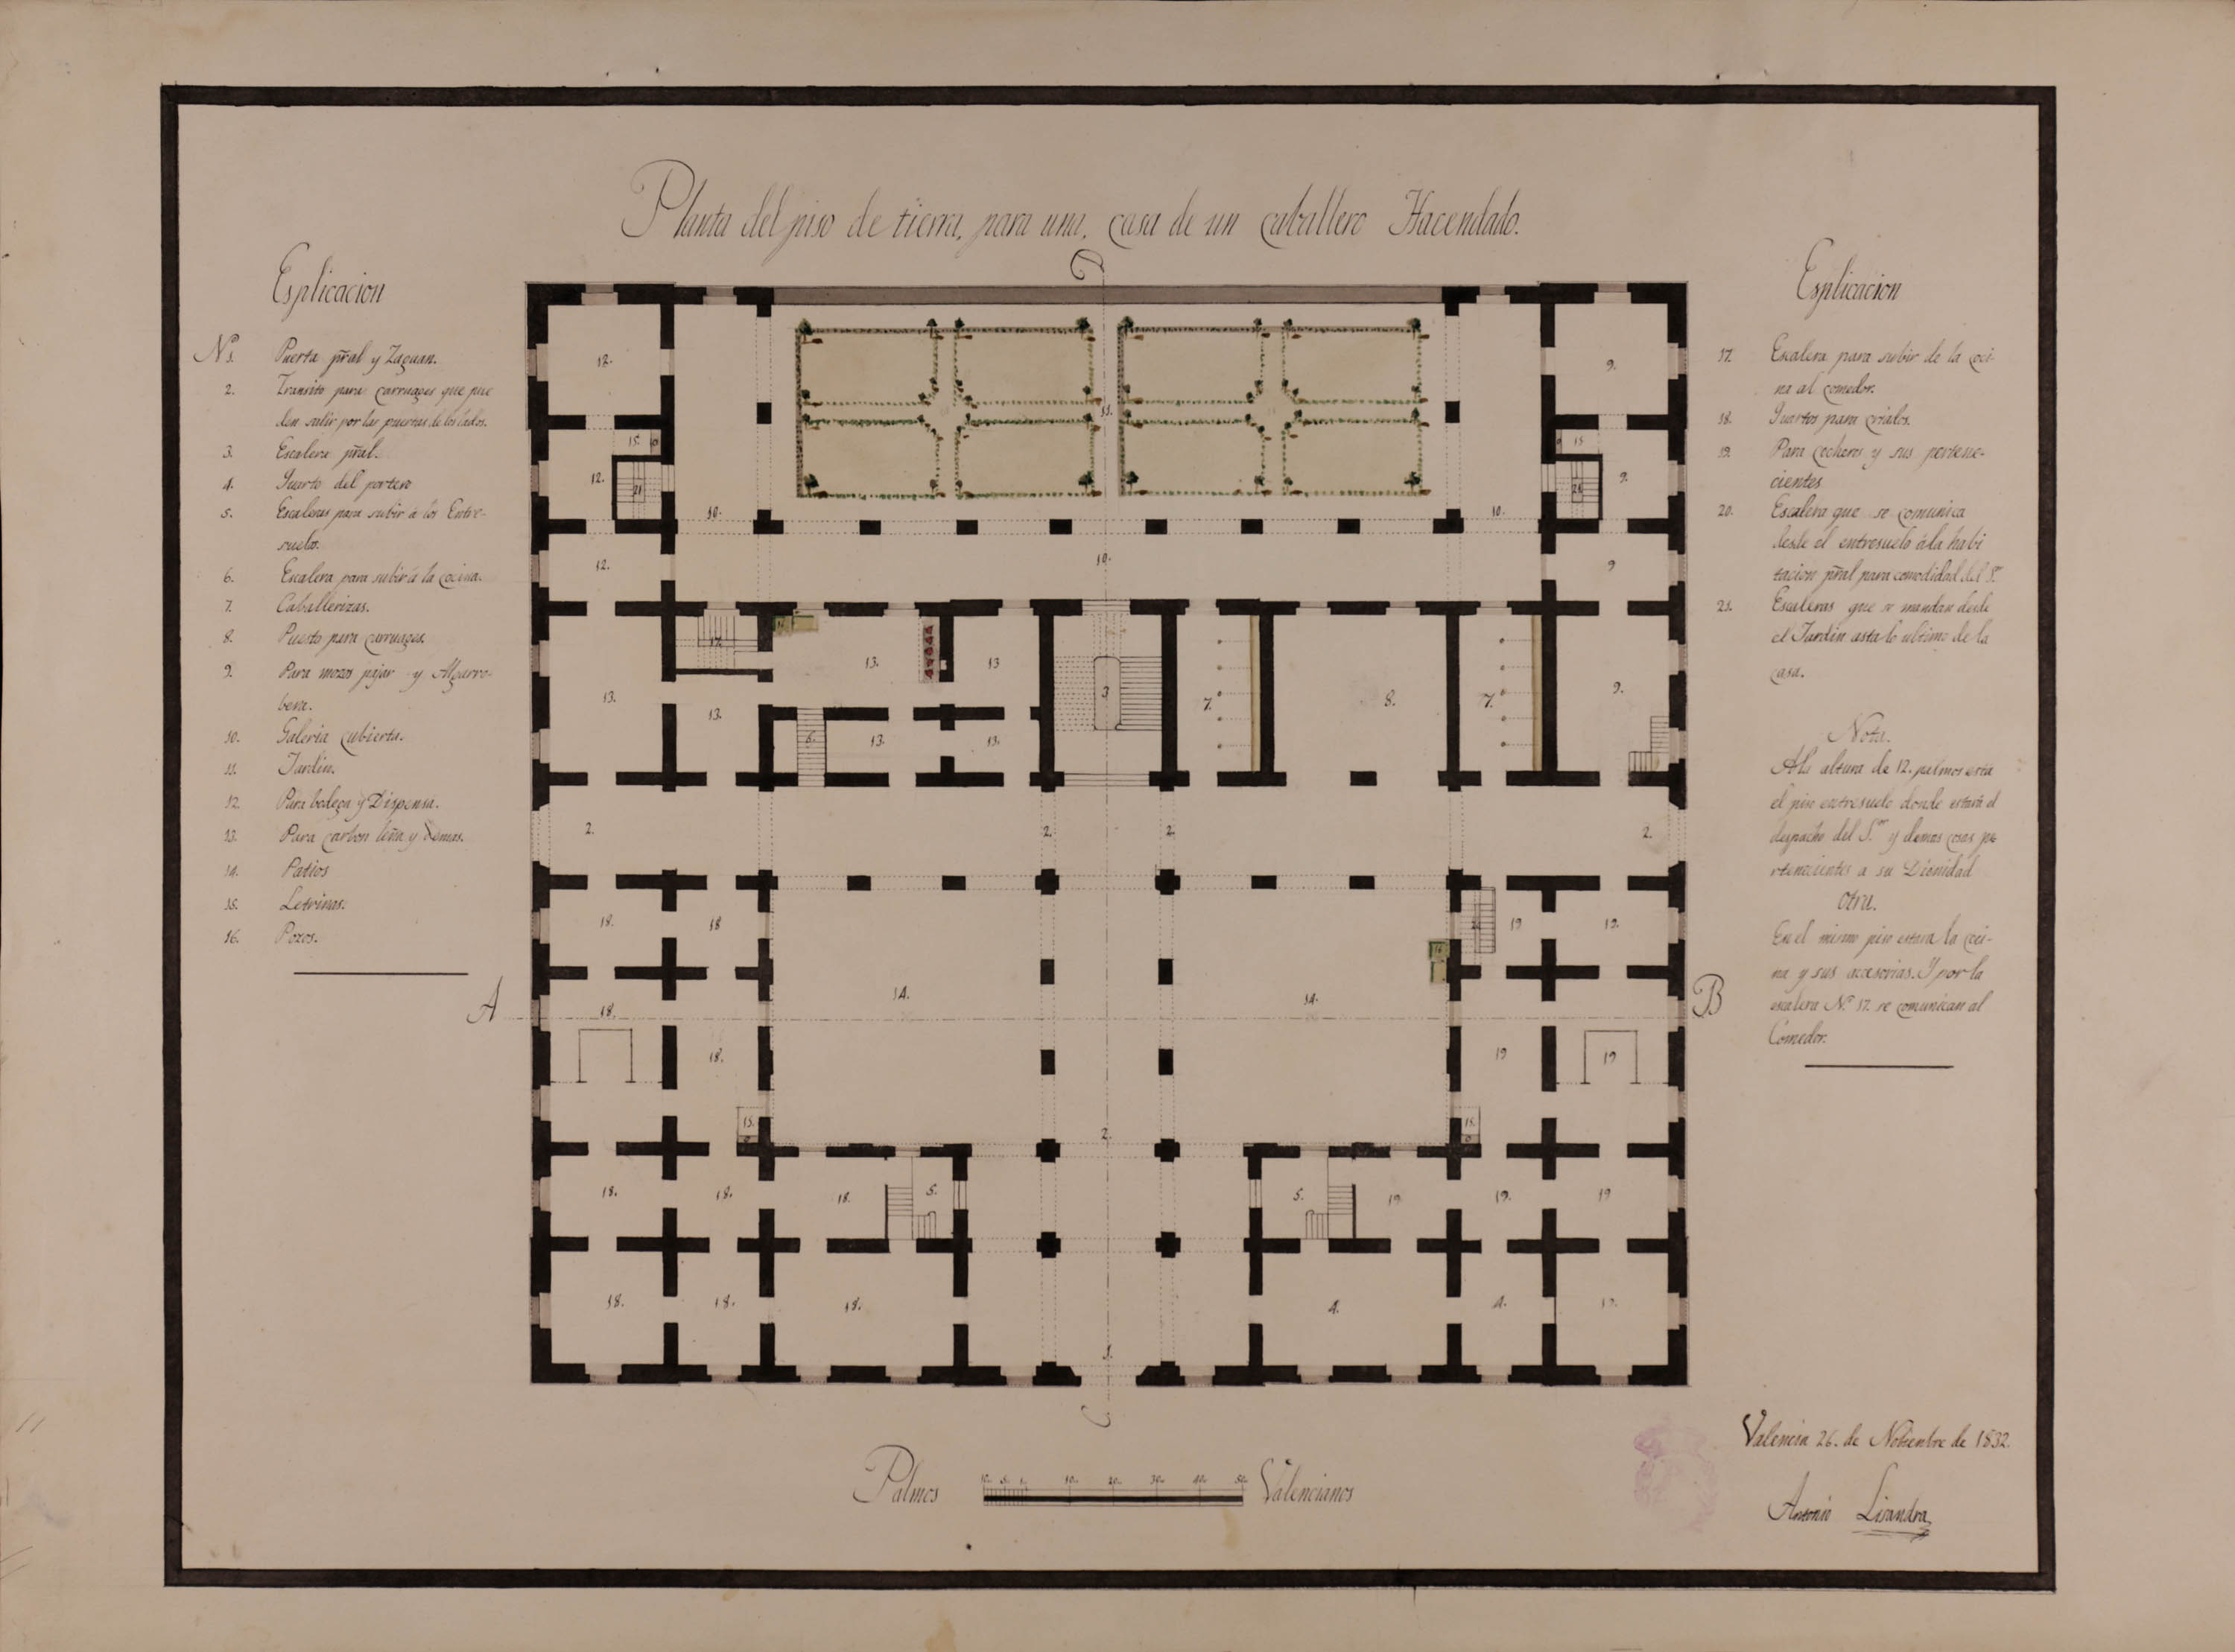 Planta del piso de tierra, para una, casa de un caballero Hacendado.
Esplicacion
Nº 1. Puerta pral y Zaguan.
2. Transito para carruages que pue
den salir por las puertas de los lados.
3. Escalera pral.
4. Quarto del portero
5. Escaleras para subir á los Entre-
suelos.
6. Escalera para subir á la Cocina.
7. Caballerizas.
8. Puesto para carruages.
9. Para mozos pajar y Algarro-
bera.
10. Galeria cubierta.
11. Jardin.
12. Para bodega y Dispensa.
13. Para carbon leña y demas.
14. Patios
15. Letrinas.
16. Pozos.
Esplicacion
17. Escalera para subir de la coci-
na al comedor.
18. Quartos para criados.
19. Para Cocheros y sus pertene-
cientes
20. Escalera que se comunica
desde el entresuelo á la habi
tacion pral para comodidad del Sor
21. Escaleras que se mandan desde
el Jardin asta lo ultimo de la
casa.
Nota.
A la altura de 12. palmos esta
el piso entresuelo donde estará el
despacho del Sor y demas cosas pe
rtenecientes a su Dignidad
Otra.
En el mismo piso estara la coci-
na y sus accesorias. Y por la
escalera Nº 17. se comunican al
Comedor.
D
12. 9.
11.
15. 15
12. 21 21 9.
10. 10.
12. 10. 9
17. 16 13. 13 3 7. 8. 7. 9.
13. 13. 6. 13. 13.
2. 2. 2. 2.
18. 18 20 19 19.
16
A 18. 14. 14. B
18. 19 19
15. 2. 15.
18. 18. 18. 5. 5. 19 19. 19
18. 18. 18. 1. 4. 4. 19.
C
Palmos 10. 5. 1. 10. 20. 30. 40. 50. Valencianos
Valencia 26. de Nobienbre de 1832.
Antonio Lisandra